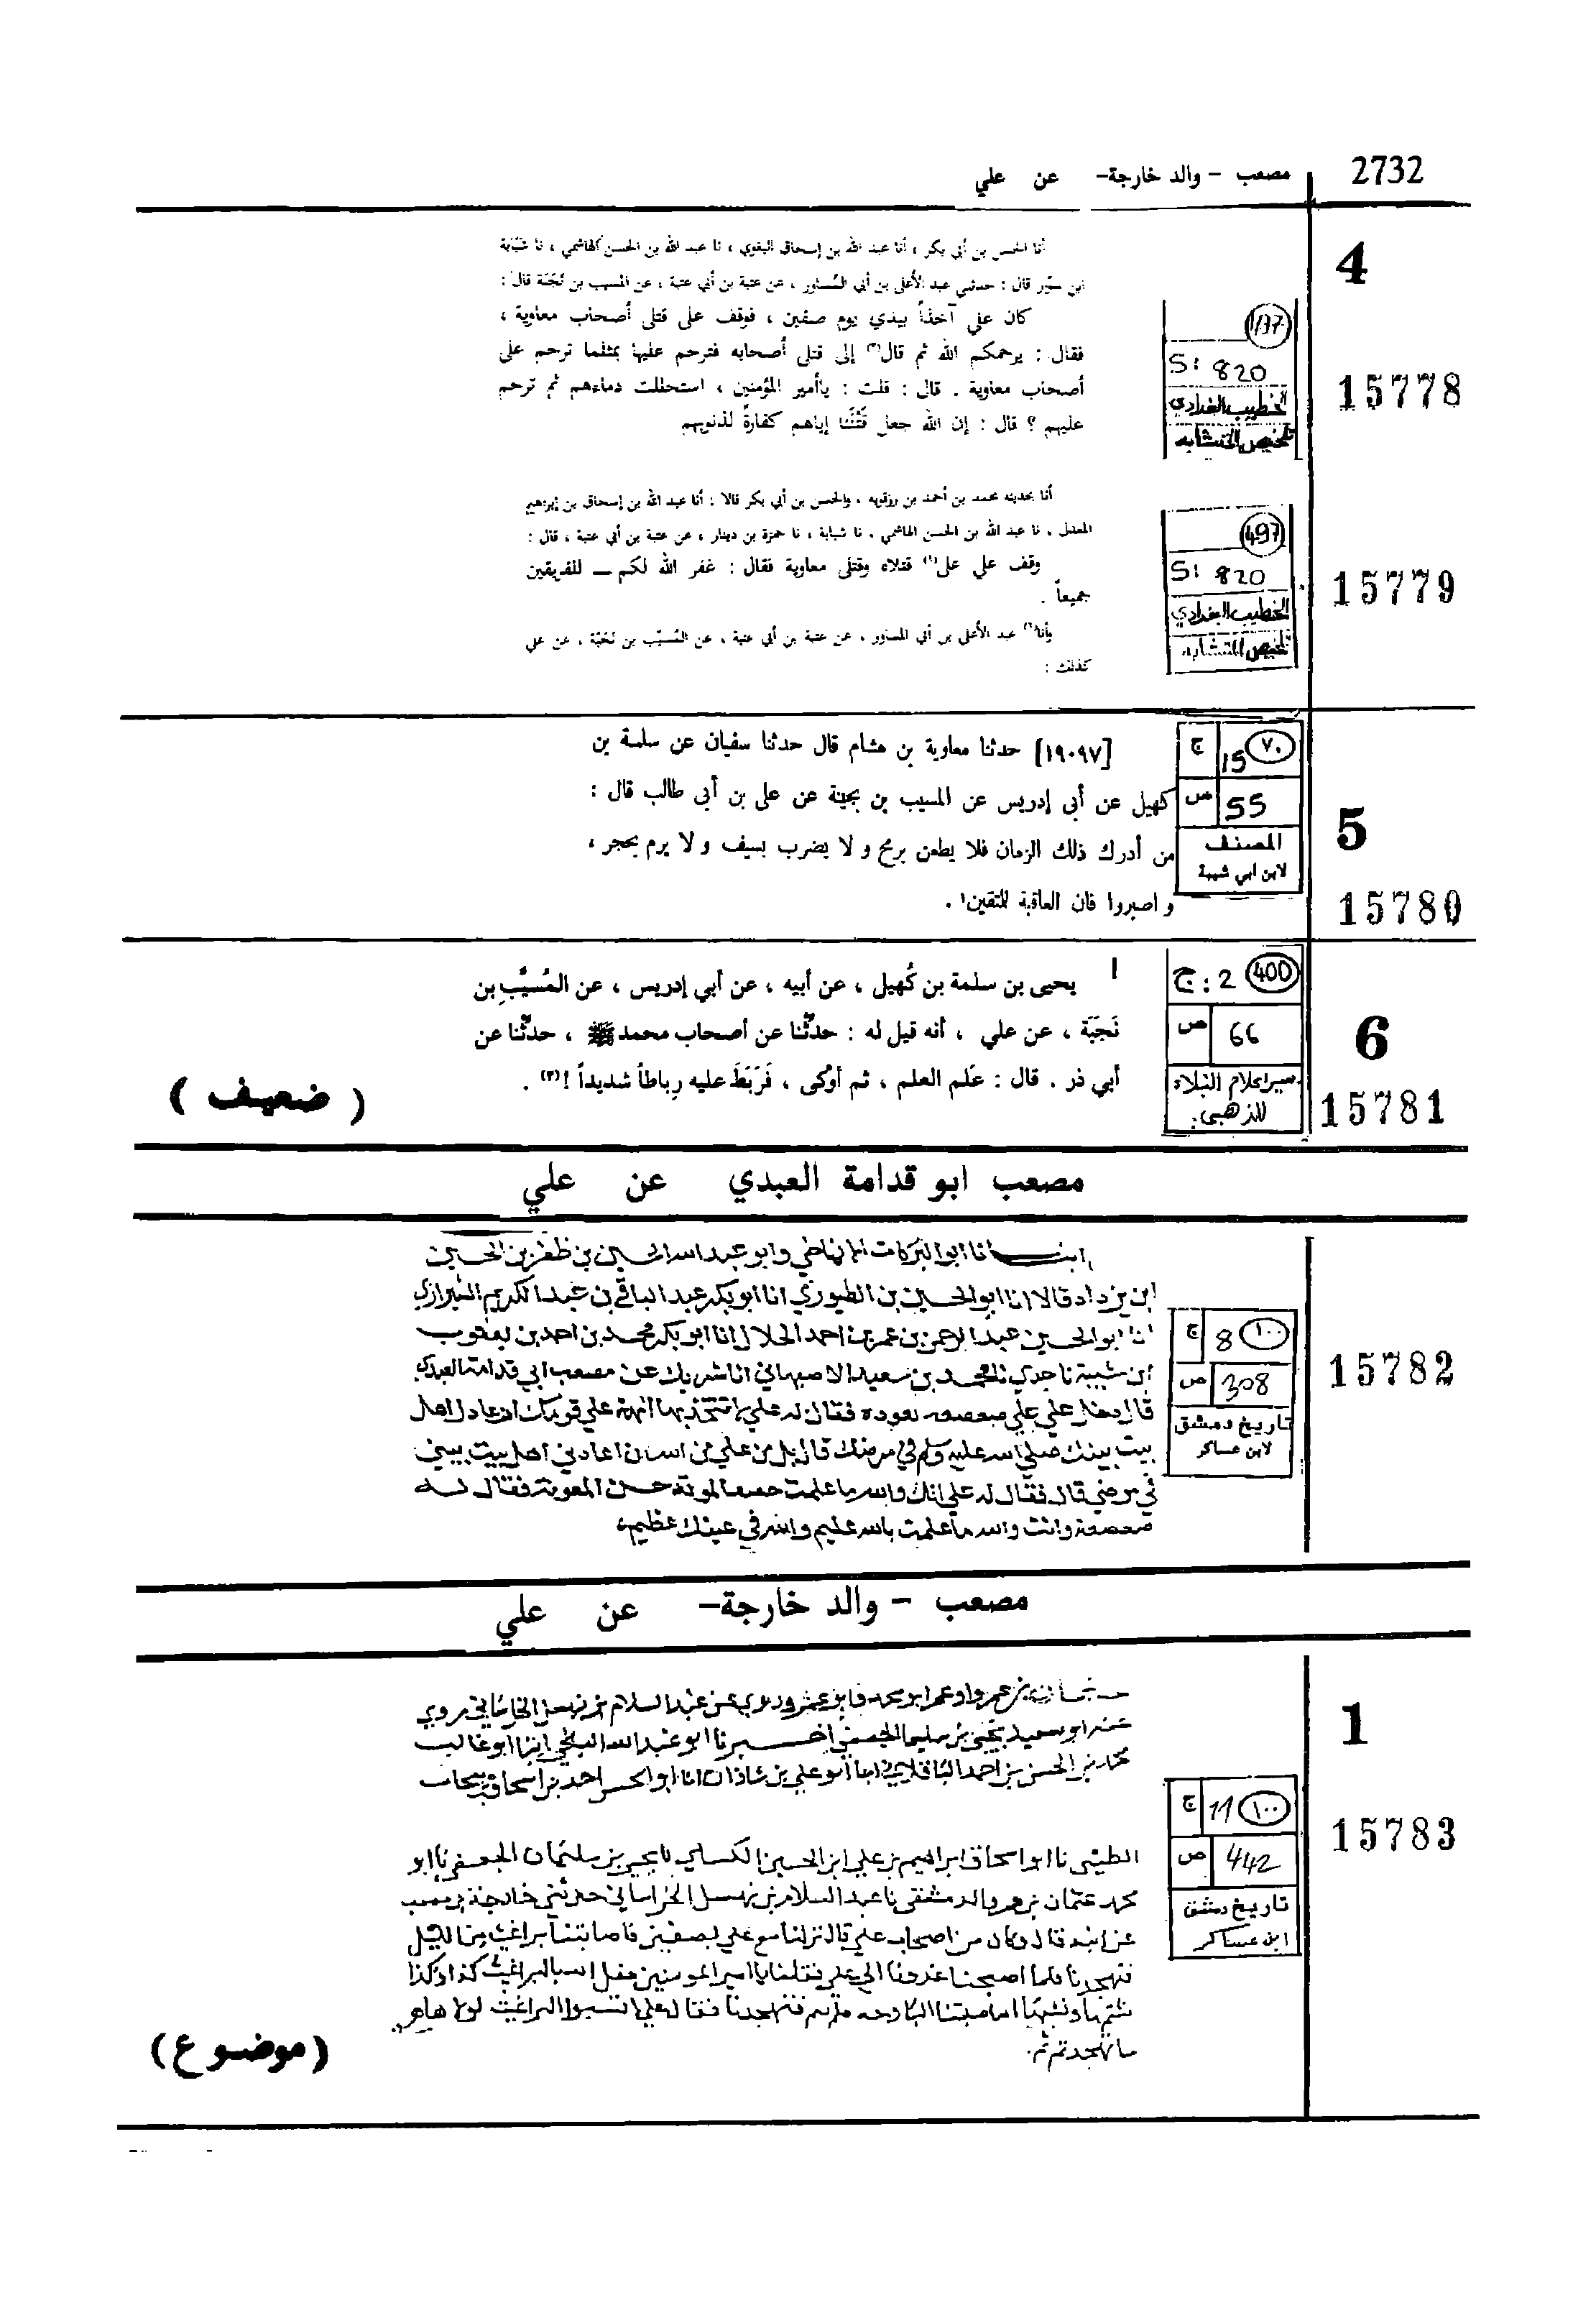 2732
مصعب - والد خارجة- عن علي
4
أنا الحسن بن أبي بكر ، أنا عبد الله بن إسحاق البغوي ، نا عبد الله بن الحسن الهاشمي ، نا شبابة
ابن سوّر قال : حدثني عبد الأعلى بن أبي المُساور ، عن عتبة بن أبي عتبة ، عن المسيب بن نَجَبَة قال :
كان علي آخذاً بيدي يوم صفين ، فوقف على قتلى أصحاب معاوية ،
فقال : يرحمكم الله ثم قال(٣) إلى قتلى أصحابه فترحم عليها بمثلما ترحم على
أصحاب معاوية . قال : قلت : ياأمير المؤمنين ، استحللت دماءهم ثم ترحم
عليهم ؟ قال : إن الله جعل قَتْلَنا إياهم كفارةً لذنوبهم
1137
S: 820
الخطيب البغدادي
تلخيص المتشابه
15778
أنا بحديثه محمد بن أحمد بن رزقويه ، والحسن بن أبي بكر قالا : أنا عبد الله بن إسحاق بن إبراهيم
المعدل . نا عبد الله بن الحسن الهاشمي . نا شبابة ، نا حمزة بن دينار ، عن عتبة بن أبي عتبة ، قال :
وقف علي على(١) قتلاه وقتلى معاوية فقال : غفر الله لكم — للفريقين
جميعاً .
وأنا(٢) عبد الأعلى بن أبي المساور ، عن عتبة بن أبي عتبة ، عن المُسيّب بن نَجَبَة ، عن علي
كذلك :
497
S: 820
الخطيب البغدادي
تلخيص المتشابه
15779
[١٩٠٩٧] حدثنا معاوية بن هشام قال حدثنا سفيان عن سلمة بن
كهيل عن أبى إدريس عن المسيب بن بجينة عن على بن أبى طالب قال :
من أدرك ذلك الزمان فلا يطعن برمح و لا يضرب بسيف و لا يرم بحجر ،
و اصبروا فان العاقبة للمتقين' .
ج 15 ٧٠
ص 55
المصنف
لابن ابي شيبة
5
15780
يحيى بن سلمة بن كُهيل ، عن أبيه ، عن أبي إدريس ، عن المُسيَّب بن
نَجَبَة ، عن علي ، أنه قيل له : حدِّثنا عن أصحاب محمد ﷺ ، حدِّثنا عن
أبي ذر . قال : عَلم العلم ، ثم أوْكى ، فَرَبَطَ عليه رِباطاً شديداً !(٣) .
( ضعيف )
ج : 2 400
ص 66
سير اعلام النبلاء
للذهبي.
6
15781
مصعب ابو قدامة العبدي عن علي
انا ابو البركات الانماطي وابو عبد الله الحسين بن ظفر بن الحسين
ابن يزداد قالا انا ابو الحسين بن الطيوري انا ابو بكر عبد الباقي بن عبد الكريم الشيرازي
انا ابو الحسين عبد الرحمن بن عمر بن احمد الخلال انا ابو بكر محمد بن احمد بن يعقوب
ابن شيبة نا جدي نا محمد بن سعيد الاصبهاني انا شريك عن مصعب ابي قدامة العبدي
قال دخل علي على صعصعه يعوده فقال له علي لا تتخذ بها ابهة على قومك ان عادك اهل
بيت نبيك صلى الله عليه وسلم في مرضك قال بل من علي من الله ان اعادني اهل بيت نبيي
في مرضي قال فقال له علي انك والله ما علمت خفيف المونة حسن المعونة فقال له
صعصعة وانت والله ما علمت بالله عليم والله في عينك عظيم.
ج 8 ١٠٠
ص 308
تاريخ دمشق
لابن عساكر
15782
مصعب - والد خارجة- عن علي
عنه ابو سعيد يحيى بن سليمان الجعفي اخبرنا ابو عبد الله البلخي انا ابو غالب
محمد بن الحسن بن احمد الباقلاني انا ابو علي بن شاذان انا ابو الحسن احمد بن اسحاق بن نيخاب
الطيبي نا ابو اسحاق ابراهيم بن علي ابن الحسين الكسائي نا يحيى بن سليمان الجعفي نا ابو
محمد عثمان بن عمرو الدمشقي نا عبد السلام بن نهشل الخراساني حدثني خارجة بن مصعب
عن ابيه قال وكان من اصحاب علي قال نزلنا مع علي بصفين فاصابتنا براغيث من الليل
فتهجدنا فلما اصبحنا غدونا الى علي فقلنا يا امير المومنين فعل الله بالبراغيث كذا وكذا
نشتمها ونسبها اصابتنا البارحه فلم ننم فتهجدنا فقال علي لا تسبوا البراغيث لولا هي
ما تهجدتم
(موضوع)
ج 11 ١٠٠
ص 442
تاريخ دمشق
ابن عساكر
1
15783